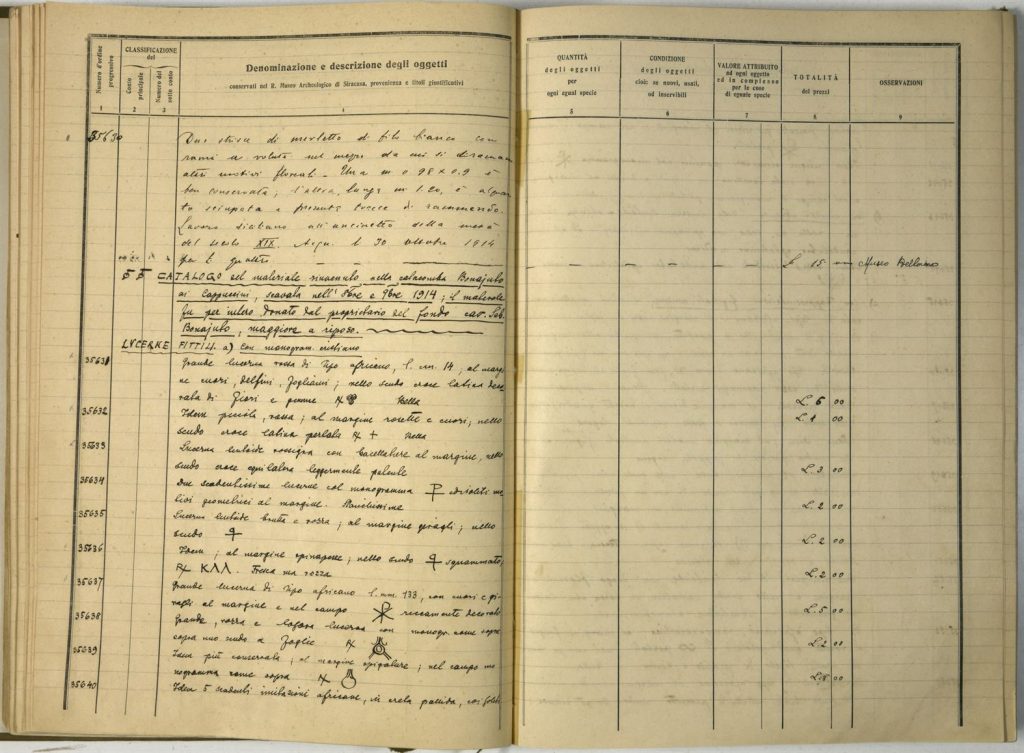 Numero d'ordine progressivo
CLASSIFICAZIONE del
Conto principale
Numero del sotto conto
Denominazione e descrizione degli oggetti
conservati nel R. Museo Archeologico di Siracusa, provenienza e titoli giustificativi
QUANTITÀ degli oggetti per ogni egual specie
CONDIZIONE degli oggetti cioè: se nuovi, usati, od inservibili
VALORE ATTRIBUITO ad ogni oggetto ed in complesso per le cose di eguale specie
TOTALITÀ dei prezzi
OSSERVAZIONI
1 2 3 4 5 6 7 8 9
35630 Due strisce di merletto di filo bianco con
rami a volute nel mezzo da cui si diramano
altri motivi floreali - Una m 0.98 x 0.9 è
ben conservata; l'altra, lunga m 1.20, è alquan
to sciupata e presenta tracce di rammendo.
Lavoro siciliano all'uncinetto della metà
del secolo XIX. Acqu. il 30. ottobre 1914
per L. quattro L 15 Museo Bellomo
CATALOGO del materiale rinvenuto nella catacomba Bonajuto
ai Cappuccini, scavata nell'8bre e 9bre 1914; il materiale
fu per intero donato dal proprietario del fondo cav. Seb.
Bonajuto, maggiore a riposo.
LUCERNE FITTILI. a) con monogram. cristiano
35631 Grande lucerna rossa di tipo africano, l. m. 14, al margi
ne cuori, delfini, fogliami; nello scudo croce latina deco
rata di fiori e gemme Bella L. 6 00
35632 Idem piccola, rossa; al margine rosette e cuori; nello
scudo croce latina perlata + Bella L. 4 00
35633 Lucerna lenticoide rossigna con baccellature al margine, nello
scudo croce equilatera leggermente patente L. 3 00
35634 Due scadentissime lucerne col monogramma ed soliti mo
tivi geometrici al margine. L. 2 00
35635 Lucerna lenticoide brutta e rozza; al margine giragli; nello
scudo L. 2 00
35636 Idem; al margine spinapesce, nello scudo squammato;
ΚΛΛ. Fresca ma rozza L. 2 00
35637 Grande lucerna di tipo africano l. mm. 133, con cuori e gi
ragli al margine e nel campo riccamente decorato L. 5 00
35638 Grande, rozza e logora lucerna con monogr. come sopra
sopra uno scudo a foglie L. 2 00
35639 Idem più conservata; al margine spigature; nel campo mo
nogramma come sopra L. 00
35640 Idem 5 scadenti imitazioni africane, in creta pallida, coi soliti